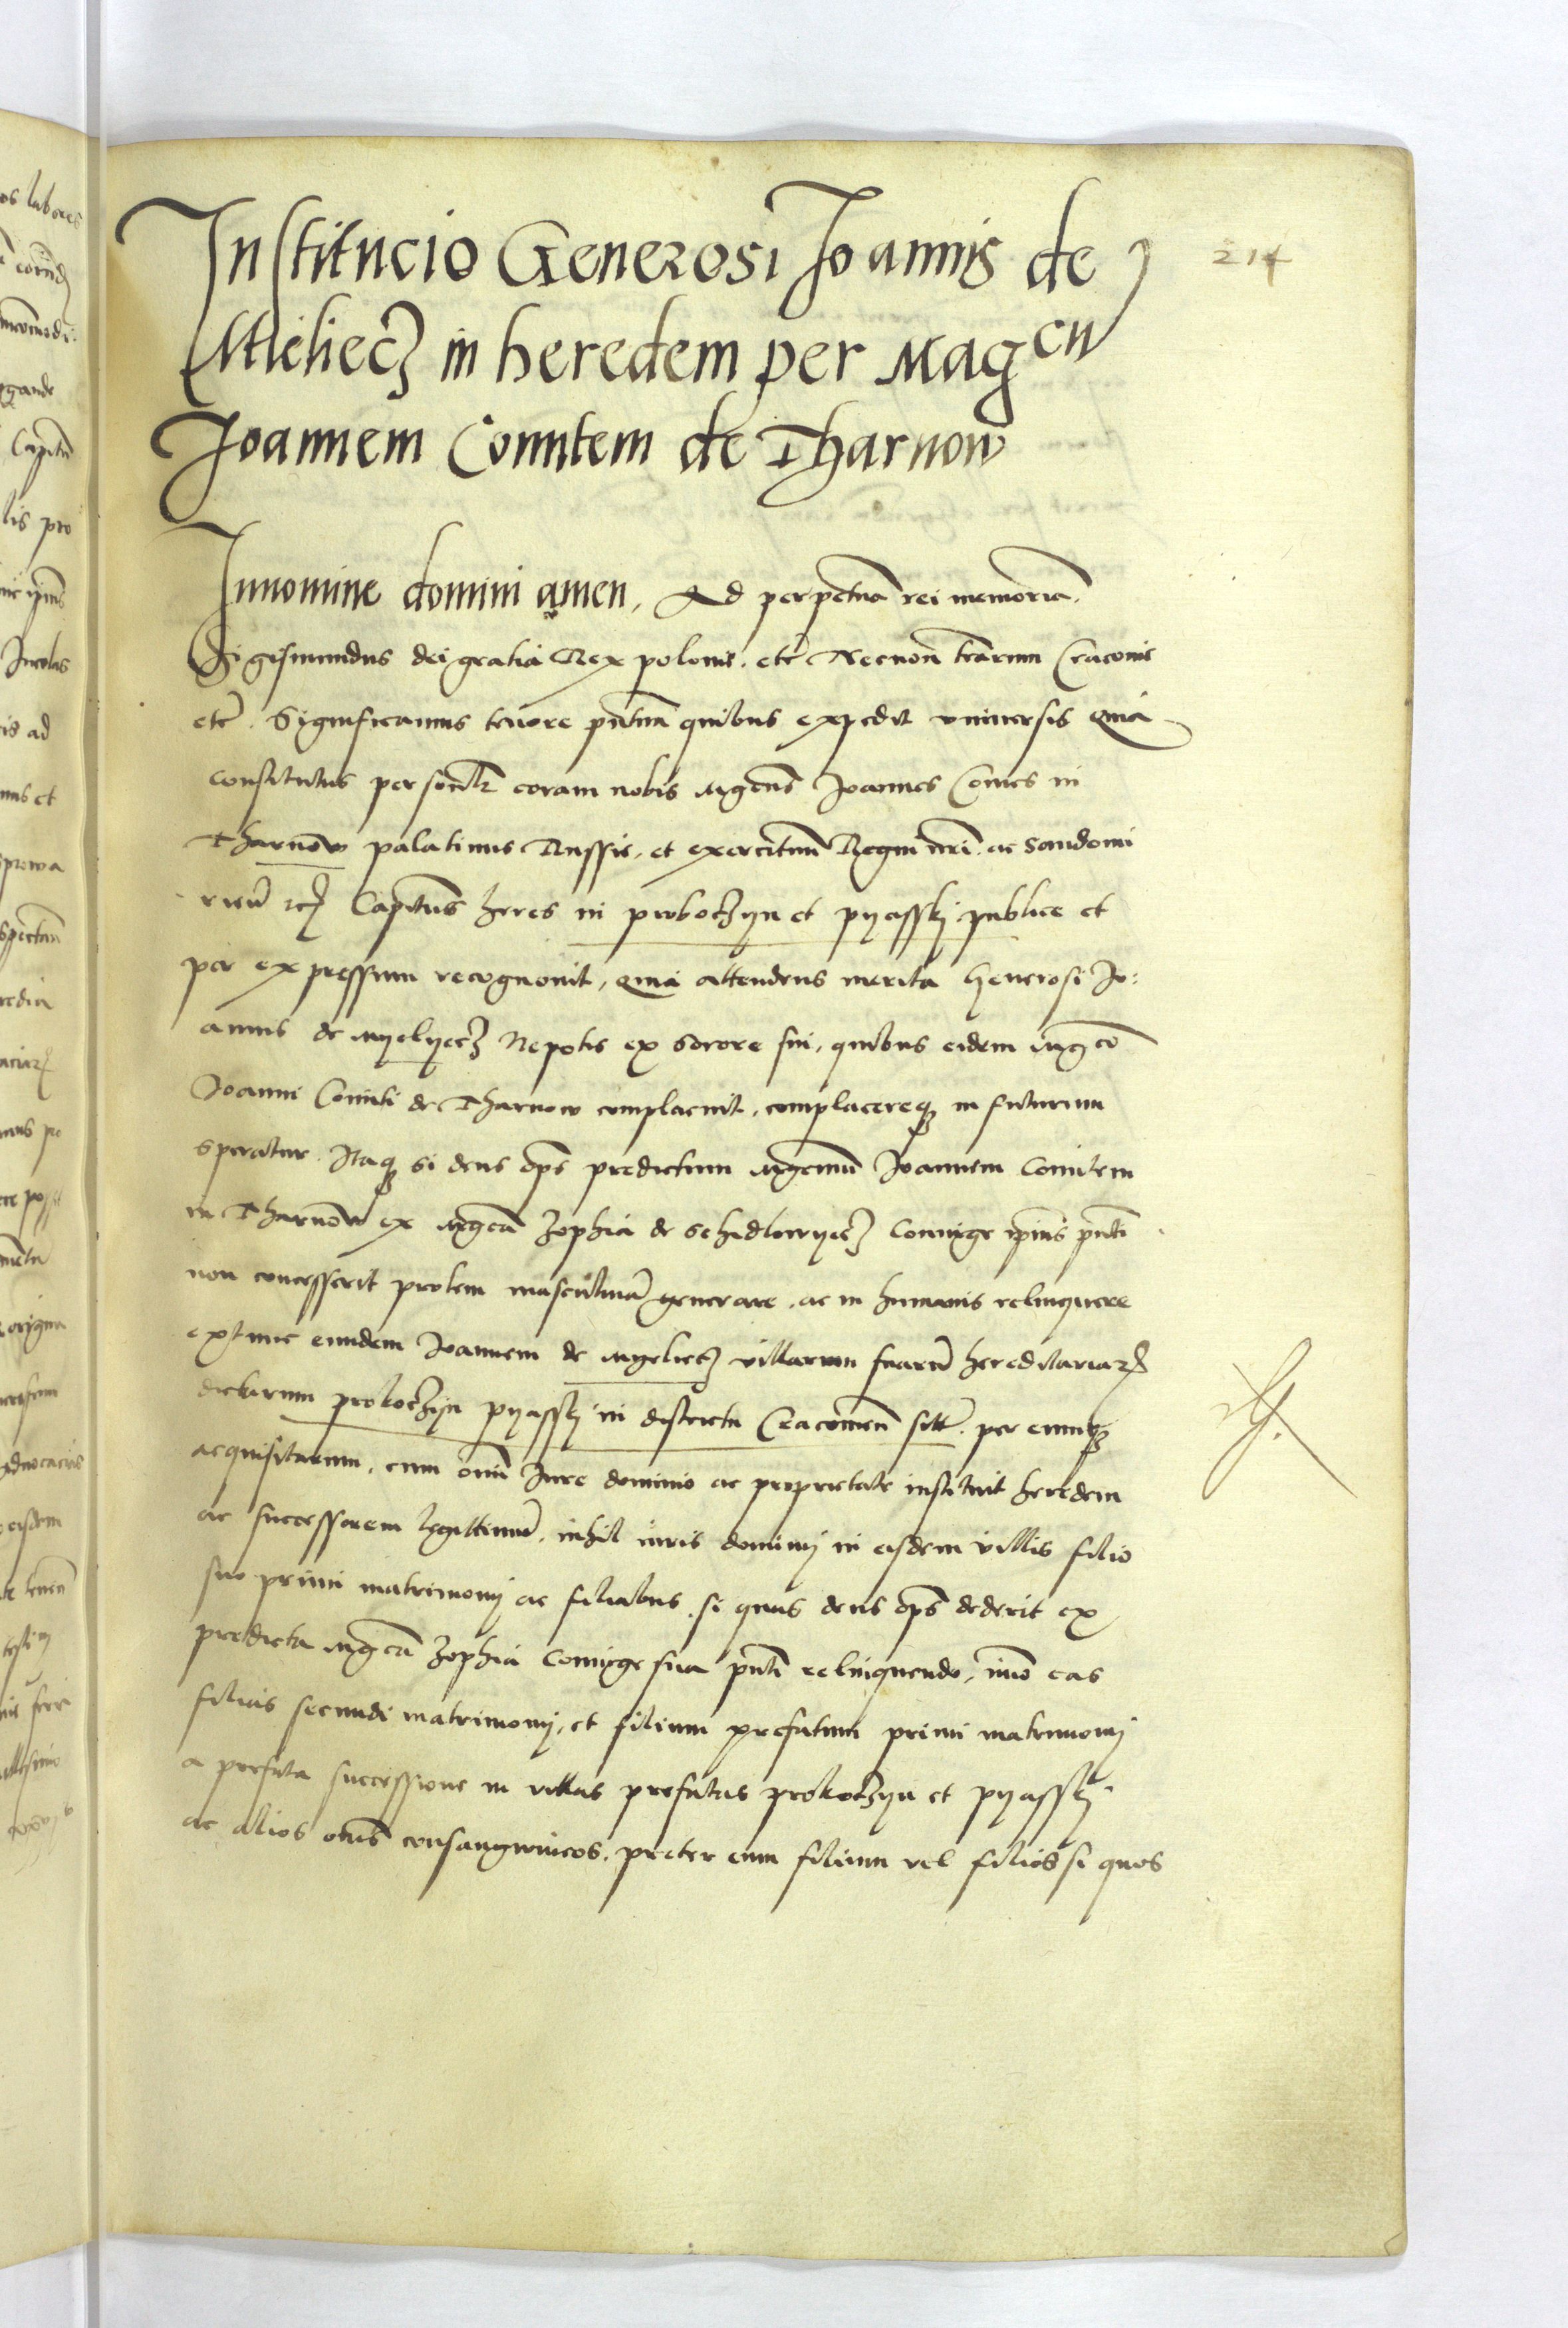 214
Institucio Generosi Joannis de
Mieliecz in heredem per Magcu
Joannem Comitem de Tharnow
In nomine domini amen, Ad perpetuā rei memoriā.
Sigismundus dei gratia Rex polonie. etc̄ Necnon terarum Cracovie
etc̄. Significamus tenore pn̄tiū quibus expedit universis Quia
constitutus personlr̄ coram nobis Mgcus̄ Joannes Comes in
Tharnow palatinus Russie, et exercituū Regni nr̄i. ac Sandomi
rien̄ Capitn̄s heres in prokoczyn et pyassky publice et
per expressum recognovit, Quia attendens merita Generosi Jo:
annis de Myelyecz Nepotis ex sorore sui, quibus eidem Mgco
Joanni Comiti de Tharnow complacuit, complacereq3 in futurum
speratur. Itaq3 si deus op̄s predictum Mgcum̄ Joannem Comitem
in Tharnow ex Mgca Zophia de Schidlowyecz Coniuge ip̄ius pn̄ti
non concesserit prolem masculinā generare. ac in humanis relinquere
extunc eundem Joannem de Myeliecz villarum suarū hereditariar̄
dictarum prokoczyn pyassky in districtu Cracovien̄ sitt̄. per eumq3
acquisitarum, cum om̄i Jure dominio ac proprietate instituit heredem
ac successorem legittimū. nihil iuris dominij in eisdem villis filio
suo primi matrimonij ac filiabus. si quas deus op̄s dederit ex
predicta Mgca Zophia Coniuge sua pn̄ti relinquendo, im̄o eas
filias secundi matrimonij, et filium prefatum primi matrimonij
a prefata successione in villas prefatas prokoczyn et pyassky
ac alios om̄s consangwineos. preter eum filium vel filios si quos